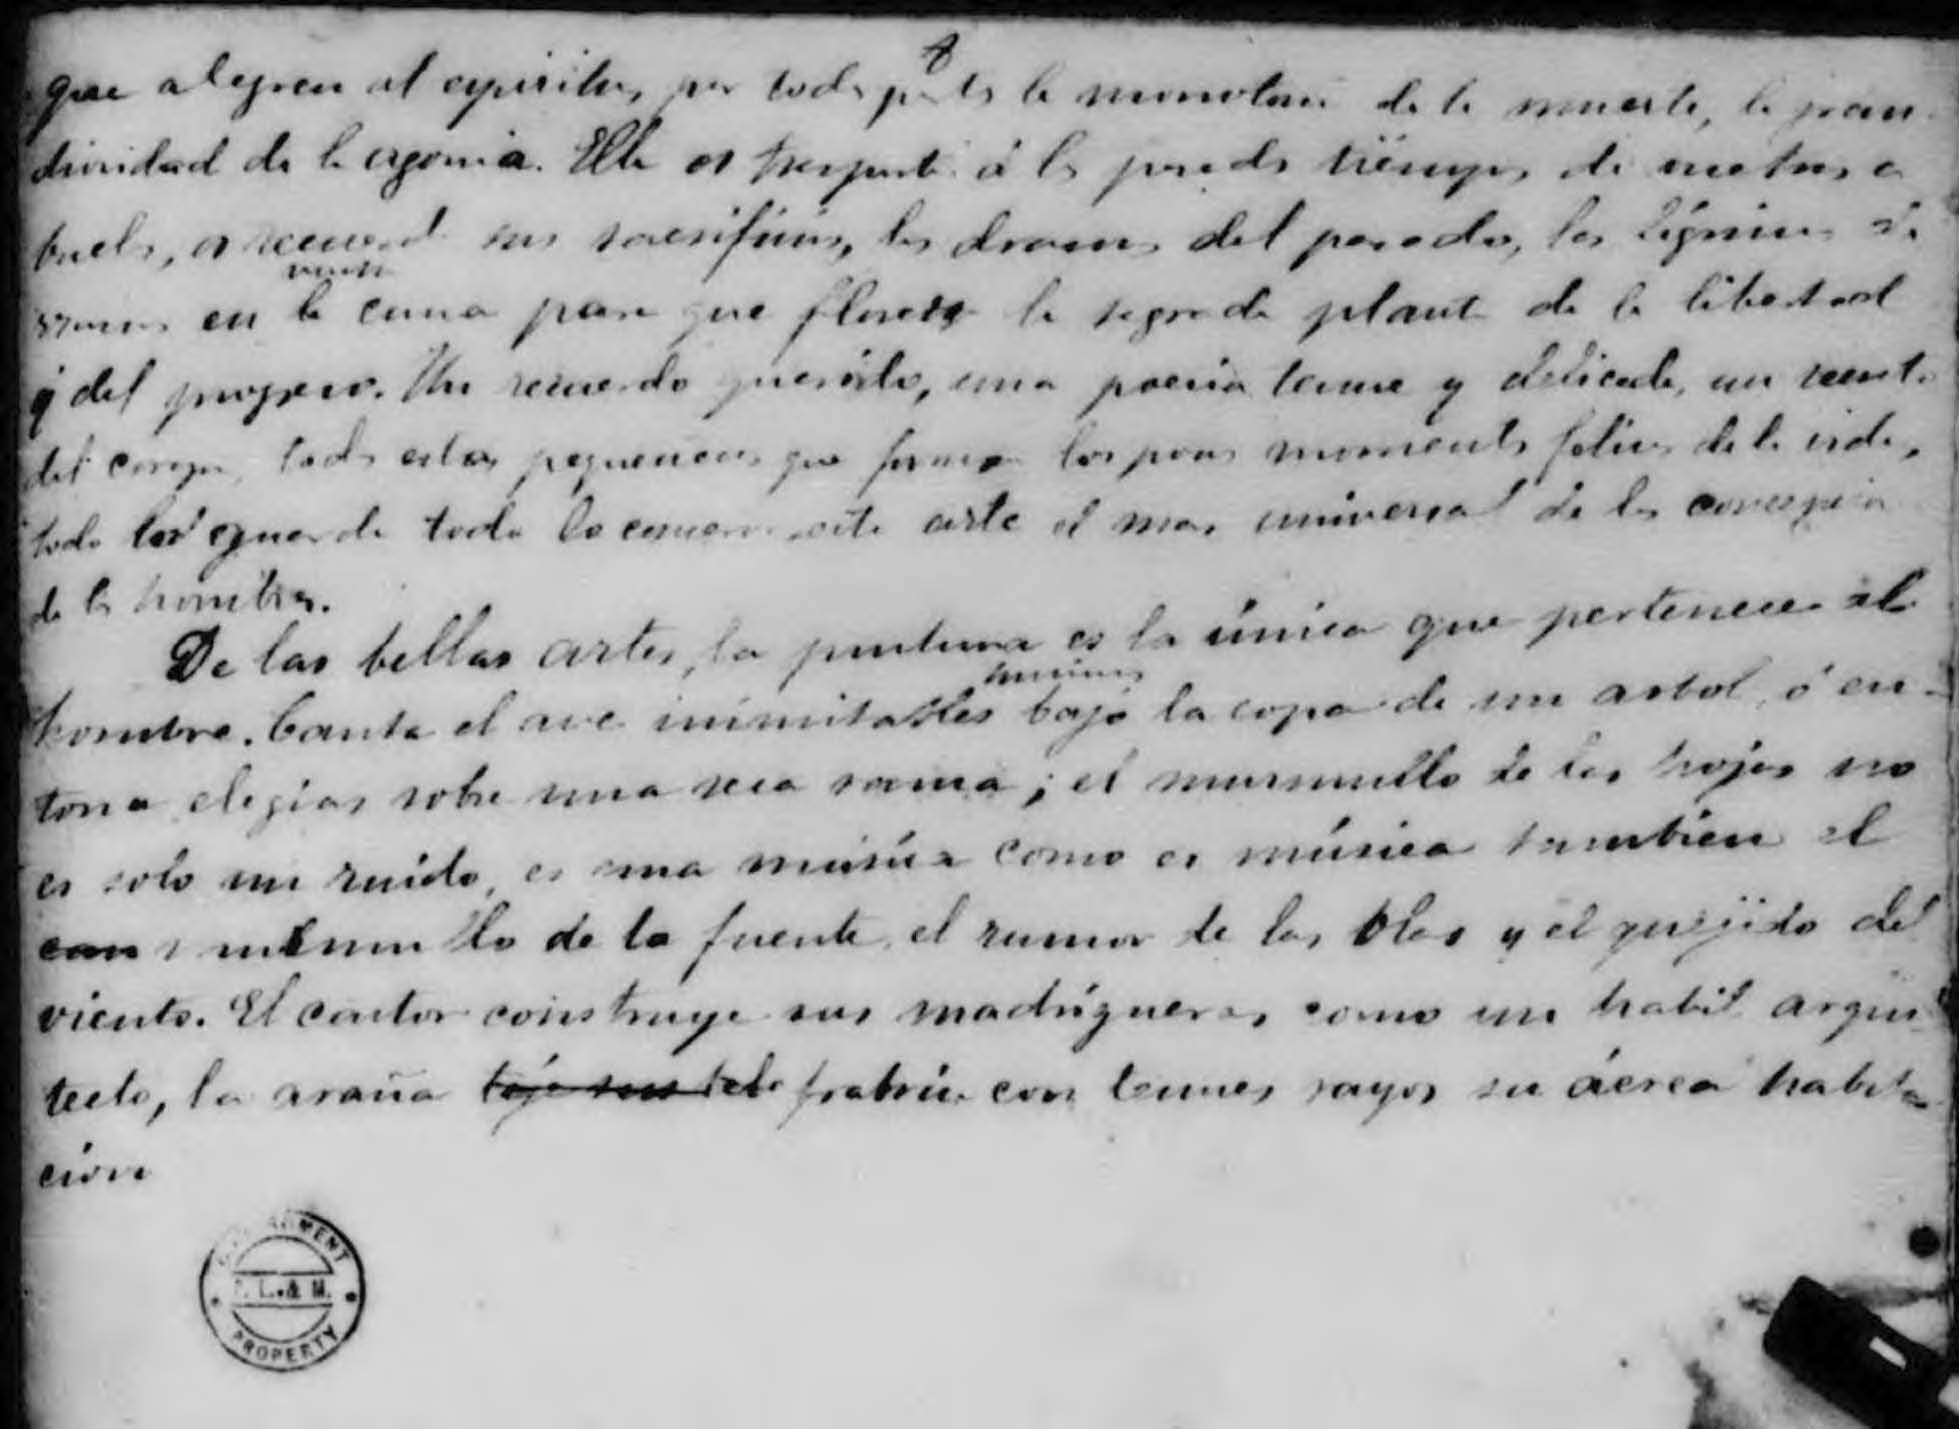 8
que alegren al espiritu, por todas partes la monotonia de la muerte, la gran
diosidad de la agonia. Ella os trasporta á los pasados tiempos de vuestros a
buelos, os recuerda sus sacrificios, los dramas del pasado, las lágrimas
vuestra
en la cuna para que florezca la sagrada planta de la libertad
y del progreso. Un recuerdo querido, una poesia tenue y delicada, un
del corazon, todas estas pequeñeces que forman los pocos momentos felices de la vida,
todo los guarda todo lo conserva este arte el mas universal de las
de los hombres.
De las bellas artes, la pintura es la única que pertenece al
himnos
hombre. Canta el ave inimitables bajo la copa de un arbol, ó en-
tona elegias sobre una seca rama; el murmullo de las hojas no
es solo un ruido, es una música como es música tambien el
murmullo de la fuente, el rumor de las olas y el quejido del
viento. El castor construye sus madrigueras como un habil arqui
tecto, la araña teje sus telas frabrica con tenues rayos su áerea habita
cion
GOVERNMENT
P.L.& M.
PROPERTY